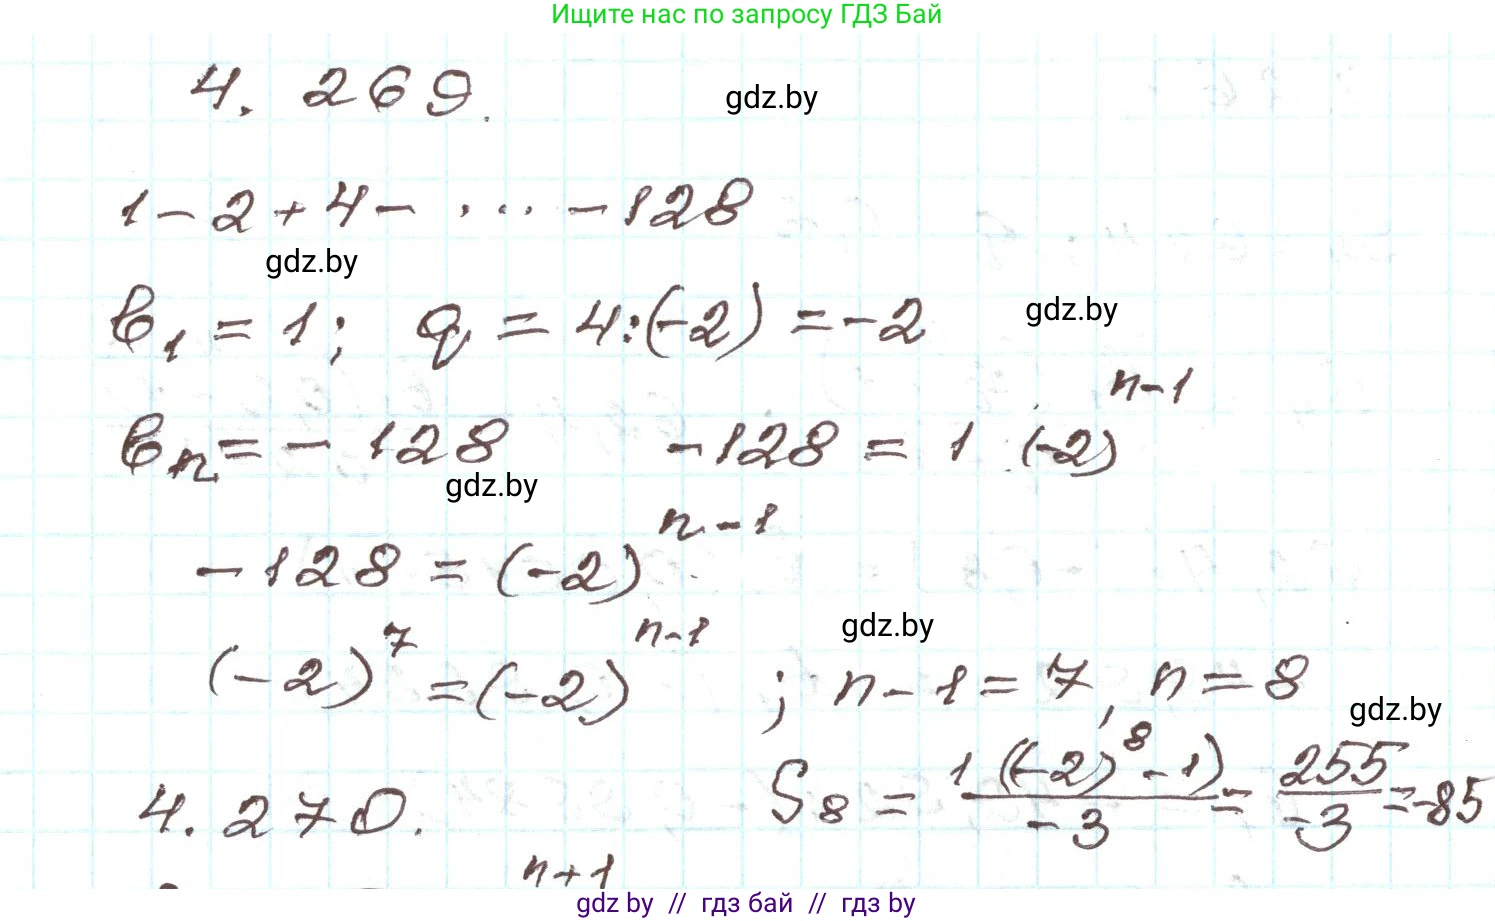 Ищите нас по запросу ГДЗ Бай
4. 269.
gdz.by
1 - 2 + 4 - . ... - 128
gdz.by
b₁ = 1; q = 4:(-2) = -2
gdz.by
bₙ = - 128 -128 = 1 (-2)ⁿ⁻¹
gdz.by
-128 = (-2)ⁿ⁻¹
gdz.by
(-2)⁷ = (-2)ⁿ⁻¹ ; n-1 = 7, n = 8
gdz.by
S₈ = 1((-2)⁸ - 1)/-3 = 255/-3 = -85
4. 270.
n+1
gdz by // гдз бай // гдз by